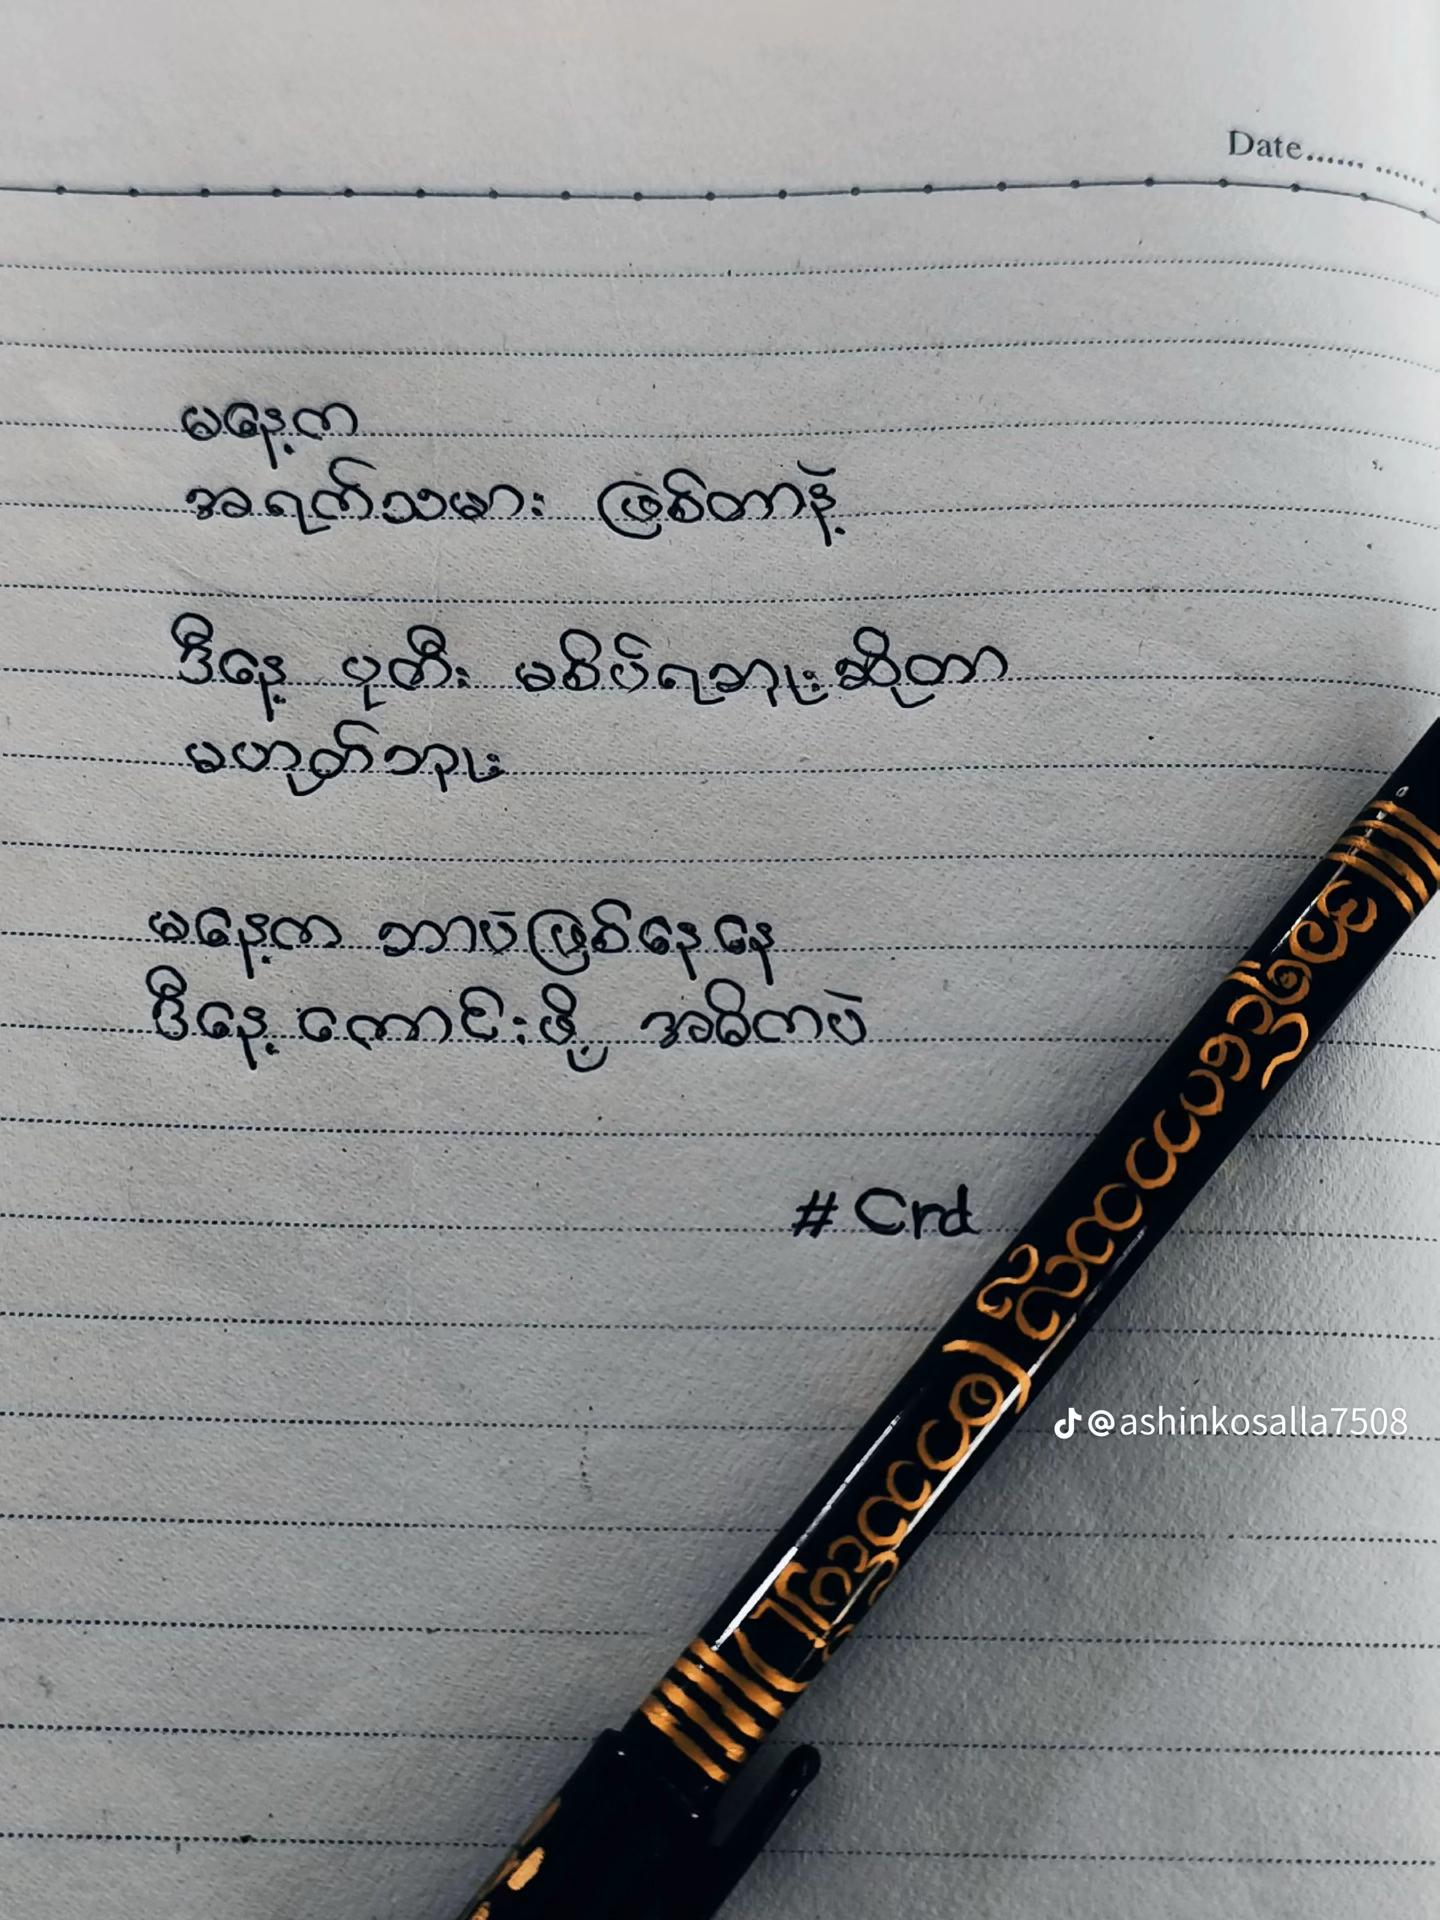 Date...... ......
မနေ့က
အရက်သမား ဖြစ်တာနဲ့
ဒီနေ့ ပုတီး မစိပ်ရဘူးဆိုတာ
မဟုတ်ဘူး
မနေ့က ဘာပဲဖြစ်နေနေ
ဒီနေ့ ကောင်းဖို့ အဓိကပဲ
# Crd
@ashinkosalla7508